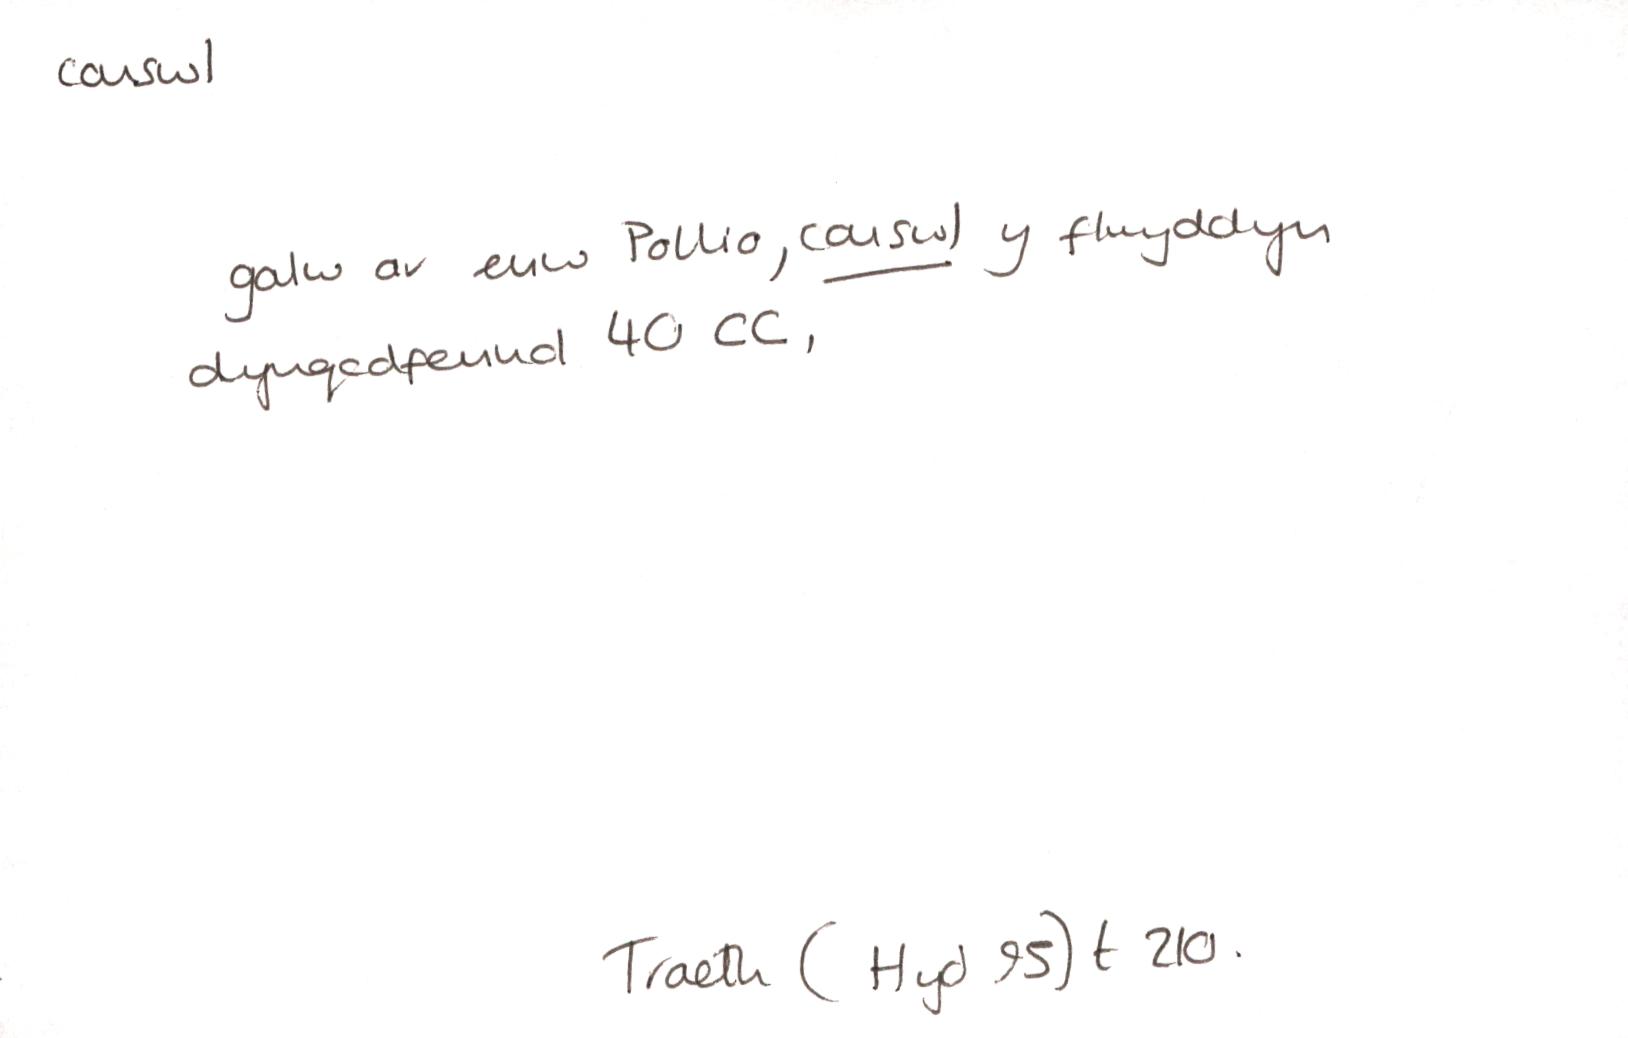 conswl
galw ar enw Pollio, conswl y flwyddyn
dyngedfennol 40 CC,
Traeth (Hyd 95) t 210.